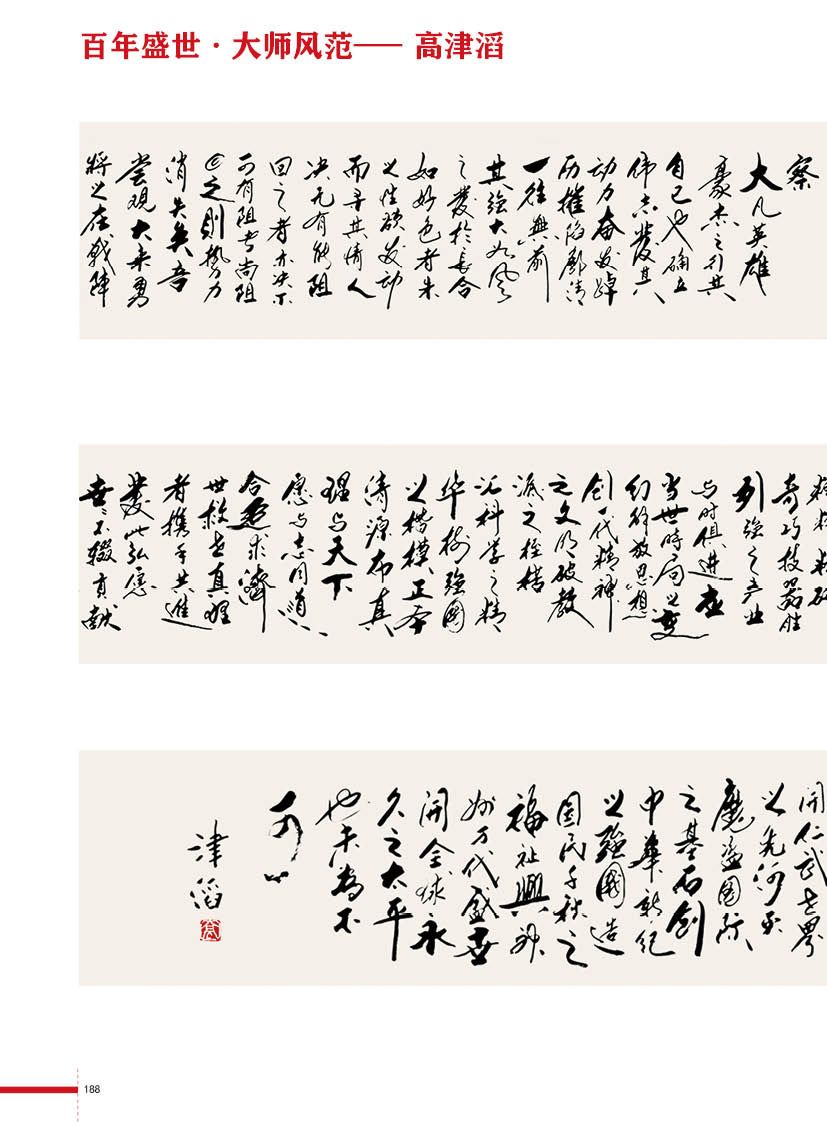 百年盛世·大师风范—— 高津滔
察
大凡英雄
豪杰之行其
自己也确立
伟志发其
动力奋发踔
厉摧陷廓清
一往无前
其强大如风
之发于长合
如好色者朱
之性欲发动
而寻其情人
决无有能阻
回之者亦决不
可有阻者尚阻
之则势力
消失矣吾
尝观大来勇
将之在战阵
奇巧技器胜
列强之产业
与时俱进在
当世时局之变
幻解放思想
创一代精神
之文明破教
派之桎梏
以科学之精
华树强国
以楷模正本
清源布真
理与天下
愿与志同道
合者求济
世救世真理
者携手共进
发此弘愿
世不辍贡献
开仁武世界
魔盗国际
之基石创
中华新纪
之强国造
国民千秋之
福祉兴神
州万代盛世
开全球永
久之太平
也未为不
可
津滔
188